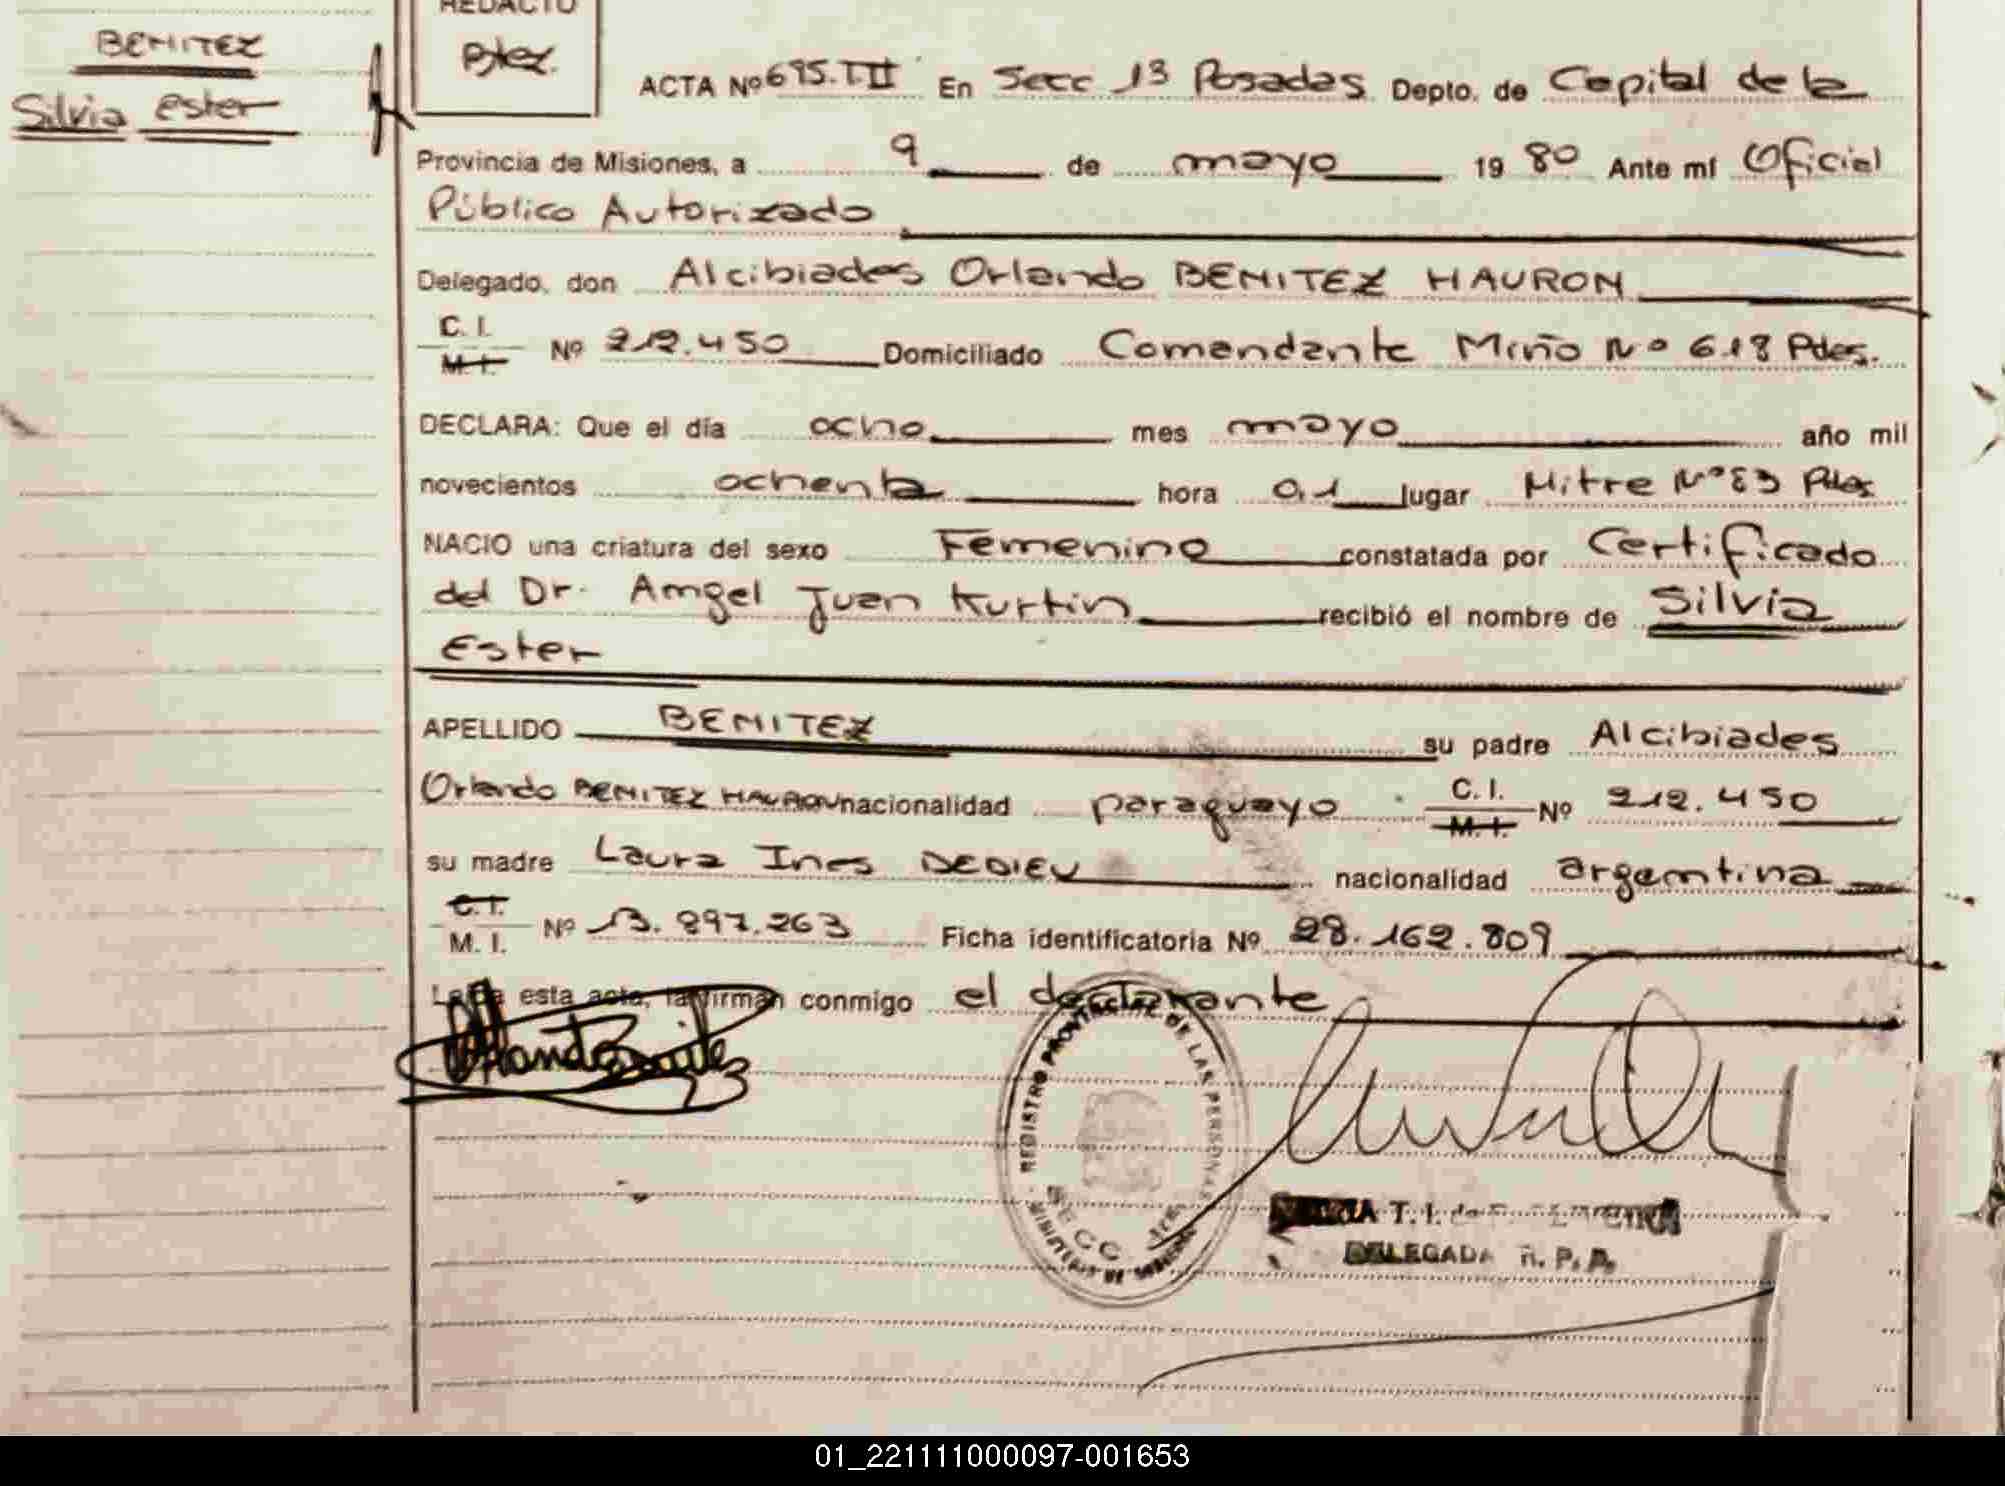 REDACTO
BENITEZ
Silvia Ester
Btez.
ACTA Nº 695.T.II En Secc 13 Posadas Depto. de Capital de la
Provincia de Misiones, a 9 de mayo 1980 Ante mí Oficial
Público Autorizado
Delegado, don Alcibiades Orlando BENITEZ HAURON
C. I.
M. I. Nº 212.450 Domiciliado Comandante Miño Nº 618 Pdas.
DECLARA: Que el día ocho mes mayo año mil
novecientos ochenta hora 01 lugar Mitre Nº 83 Pdas
NACIO una criatura del sexo Femenino constatada por Certificado
del Dr. Angel Juan Kurtin recibió el nombre de Silvia
Ester
APELLIDO BENITEZ su padre Alcibiades
Orlando BENITEZ HAURON nacionalidad paraguayo C. I.
M. I. Nº 212.450
su madre Laura Ines DEDIEU nacionalidad argentina
C. I.
M. I. Nº 13.897.263 Ficha identificatoria Nº 28.162.809
Leída esta acta, la firman conmigo el declarante
REGISTRO PROVINCIAL DE LAS PERSONAS
SECC.
MINISTERIO DE GOBIERNO
T. I. de
DELEGADA R. P. P.
01_221111000097-001653